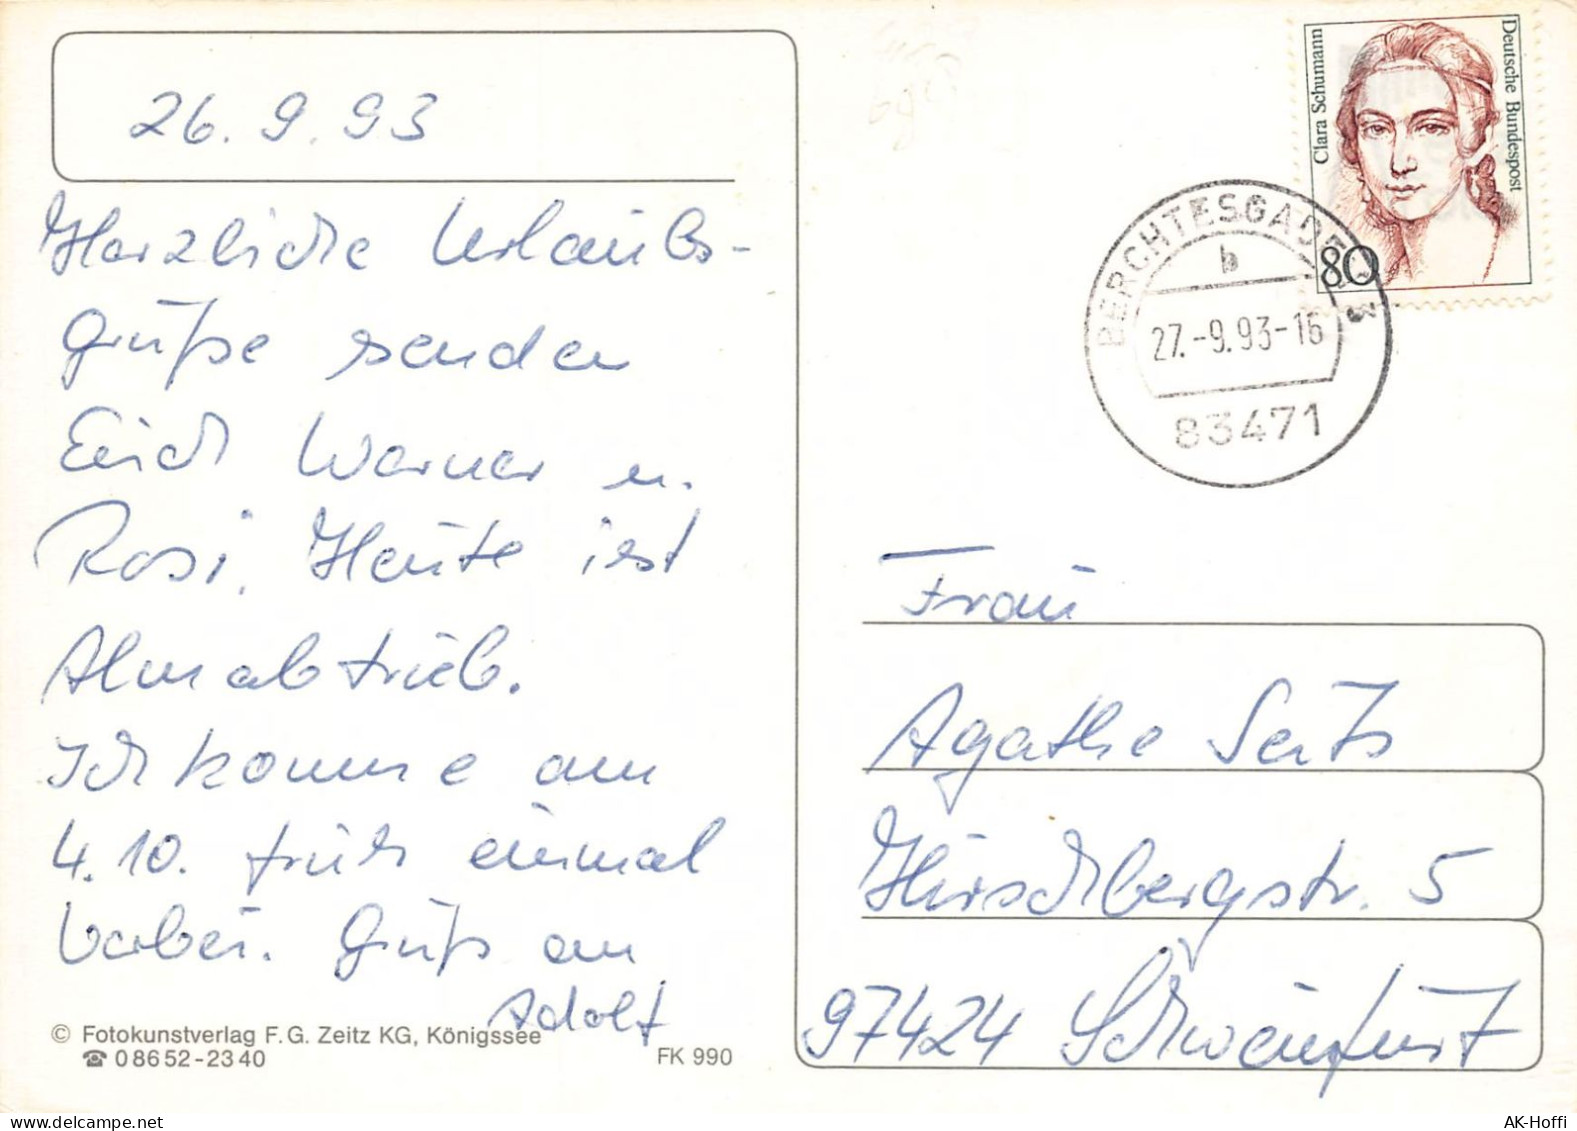 26. 9. 93
Herzliche Urlaubs-
grüße senden
Euch Werner u.
Rosi. Heute ist
Almabtrieb.
Ich komme am
4.10. früh einmal
vorbei. Gruß an
Adolf
© Fotokunstverlag F. G. Zeitz KG, Königssee
☎ 0 86 52 - 23 40
FK 990
Clara Schumann
Deutsche Bundespost
80
BERCHTESGADEN 3
b
27.-9.93-16
83471
Frau
Agathe Seits
Hirschbergstr. 5
97424 Schweinfurt
AK-Hoffi